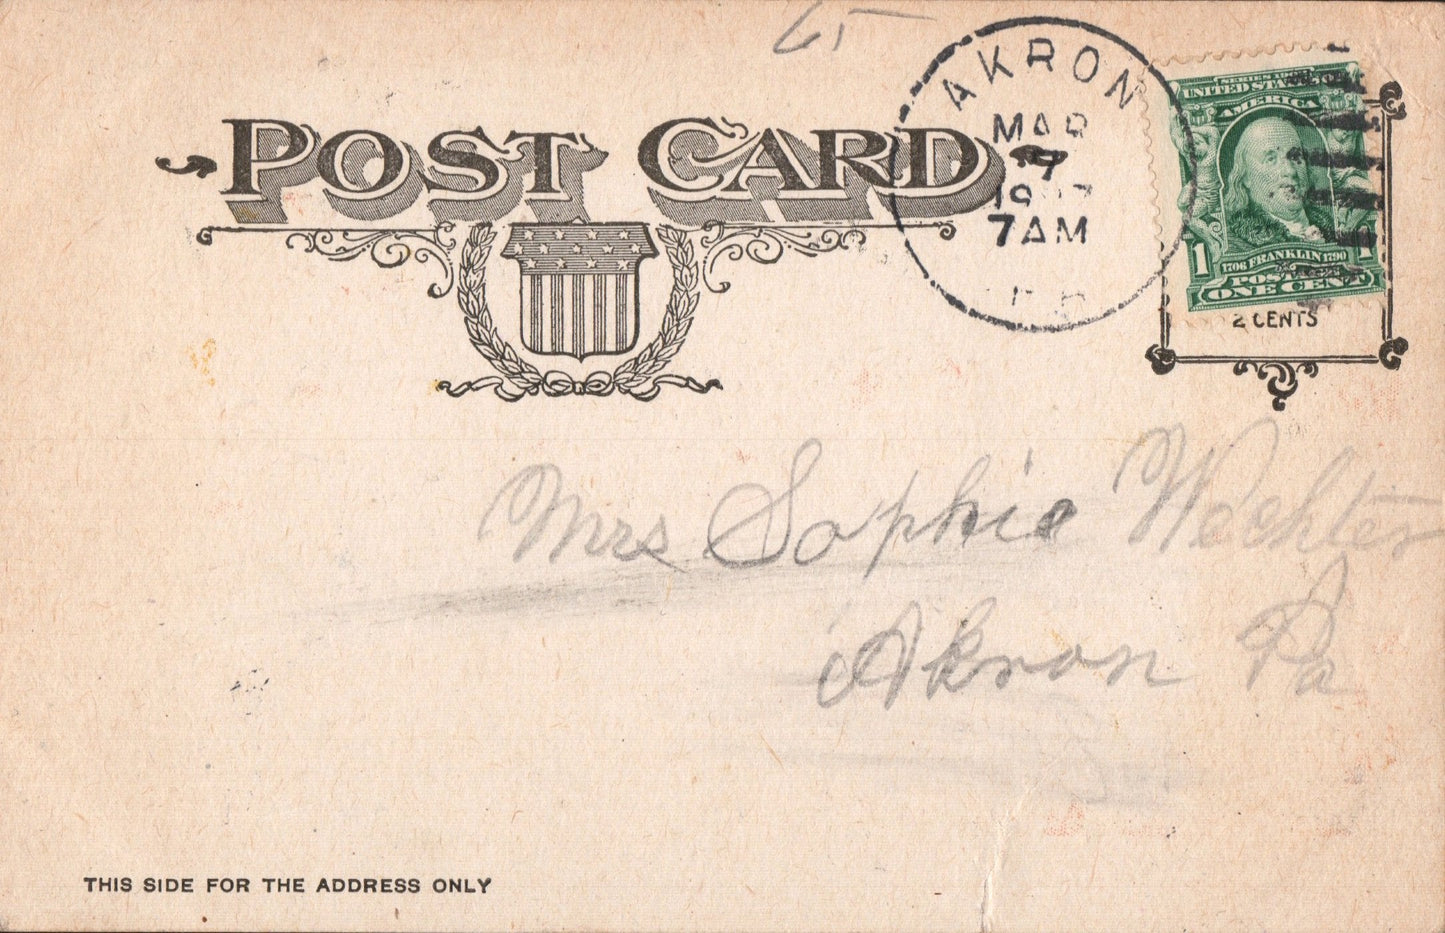 65
POST CARD
AKRON
MAR
7
7 AM
SERIES 1902
UNITED STATES OF
AMERICA
1 1
1706 FRANKLIN 1790
POSTAGE
ONE CENT
2 CENTS
Mrs Sophie Wechter
Akron Pa
THIS SIDE FOR THE ADDRESS ONLY